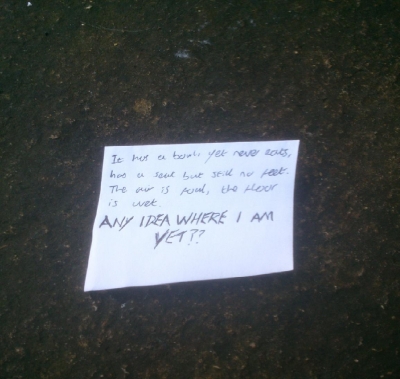 It has a yet never eats,
has a soul but still no feet.
The air is foul, the floor
is wet.
ANY IDEA WHERE I AM
YET??